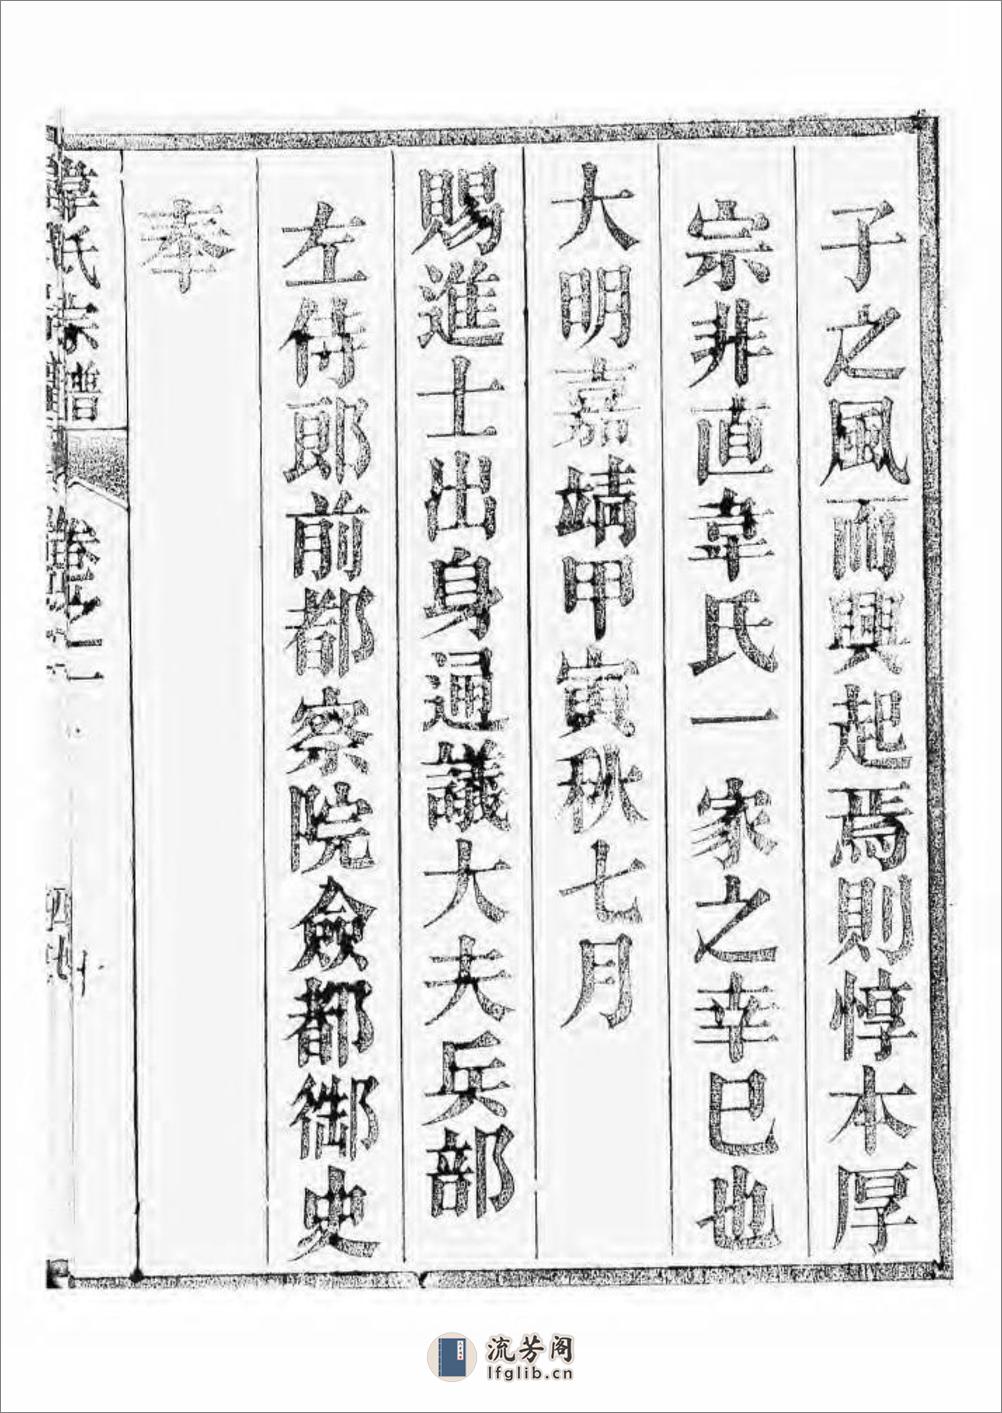 子之風而興起焉則惇本厚
宗非直韋氏一家之幸巳也
大明嘉靖甲寅秋七月
賜進士出身通議大夫兵部
左侍郎前都察院僉都御史
奉
韋氏宗譜
卷之一
流芳阁
lfglib.cn